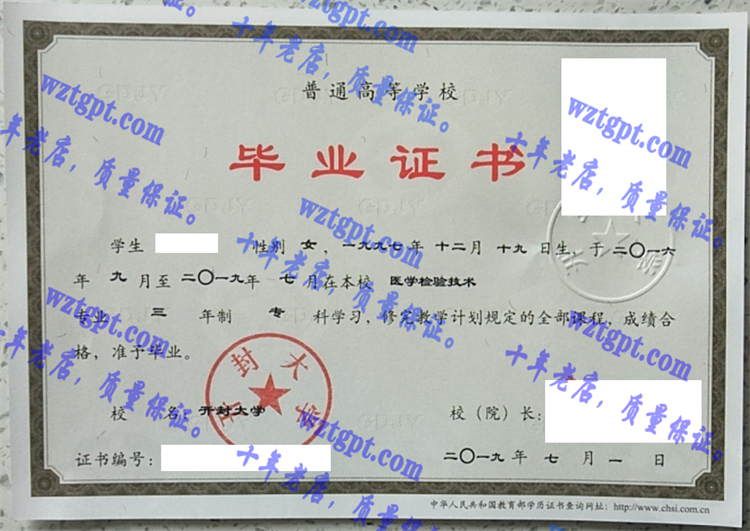 普通高等学校
毕业证书
学生 性别 女，一九九七年 十二月 十九 日生，于二〇一六
年 九 月至 二〇一九年 七 月在本校 医学检验技术
专业 三 年制 专 科学习，修完教学计划规定的全部课程，成绩合
格，准予毕业。
校 名：开封大学
校（院）长：
证书编号：
二〇一九 年 七 月 一 日
中华人民共和国教育部学历证书查询网址：http://www.chsi.com.cn
开封大学
wztgpt.com
十年老店，质量保证。
wztgpt.com
十年老店，质量保证。
wztgpt.com
十年老店，质量保证。
wztgpt.com
十年老店，质量保证。
wztgpt.com
十年老店，质量保证。
wztgpt.com
十年老店，质量保证。
wztgpt.com
十年老店，质量保证。
wztgpt.com
十年老店，质量保证。